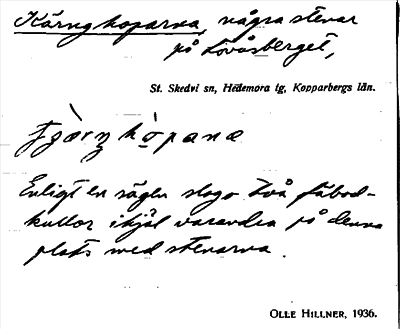 Käringkoparna, några stenar
på Lovåsberget,
St. Skedvi sn, Hedemora tg, Kopparbergs län.
Enligt en sägen slogo två fäbod-
kullor ihjäl varandra på denna
plats med stenarna.
OLLE HILLNER, 1936.